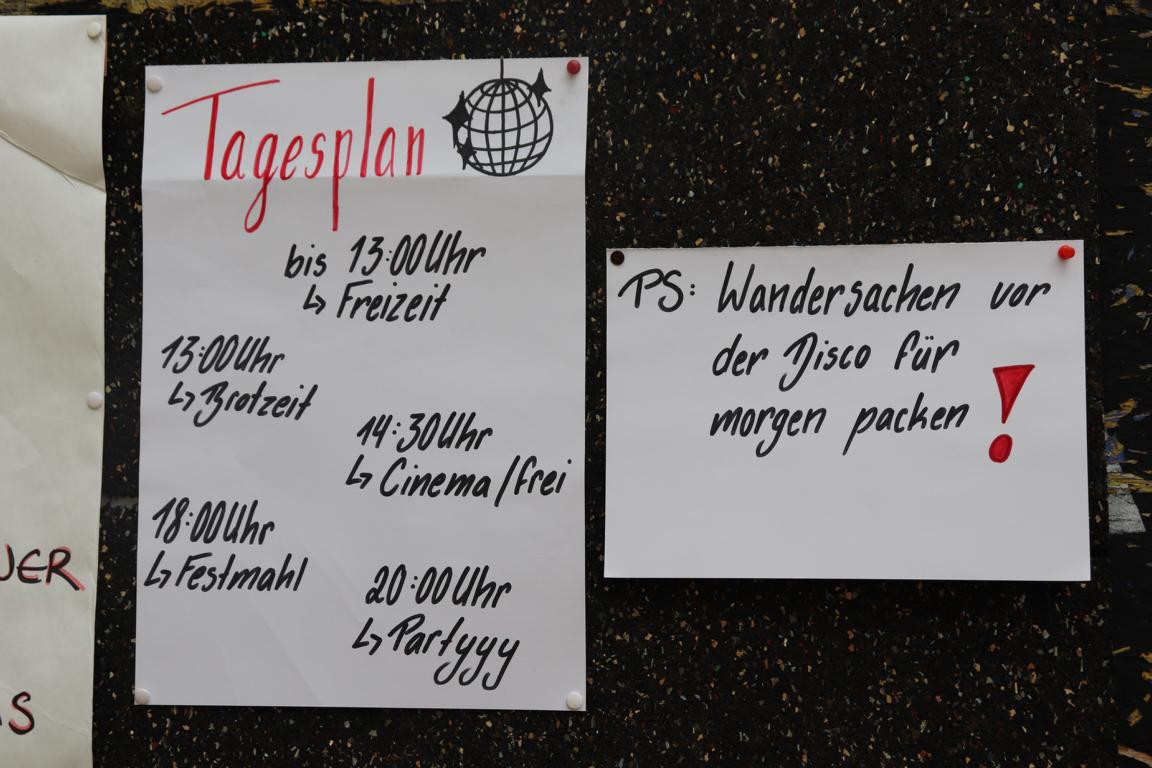 Tagesplan
bis 13:00 Uhr
↳ Freizeit
13:00 Uhr
↳ Brotzeit
14:30 Uhr
↳ Cinema/frei
18:00 Uhr
↳ Festmahl
20:00 Uhr
↳ Partyyy
PS: Wandersachen vor
der Disco für
morgen packen !